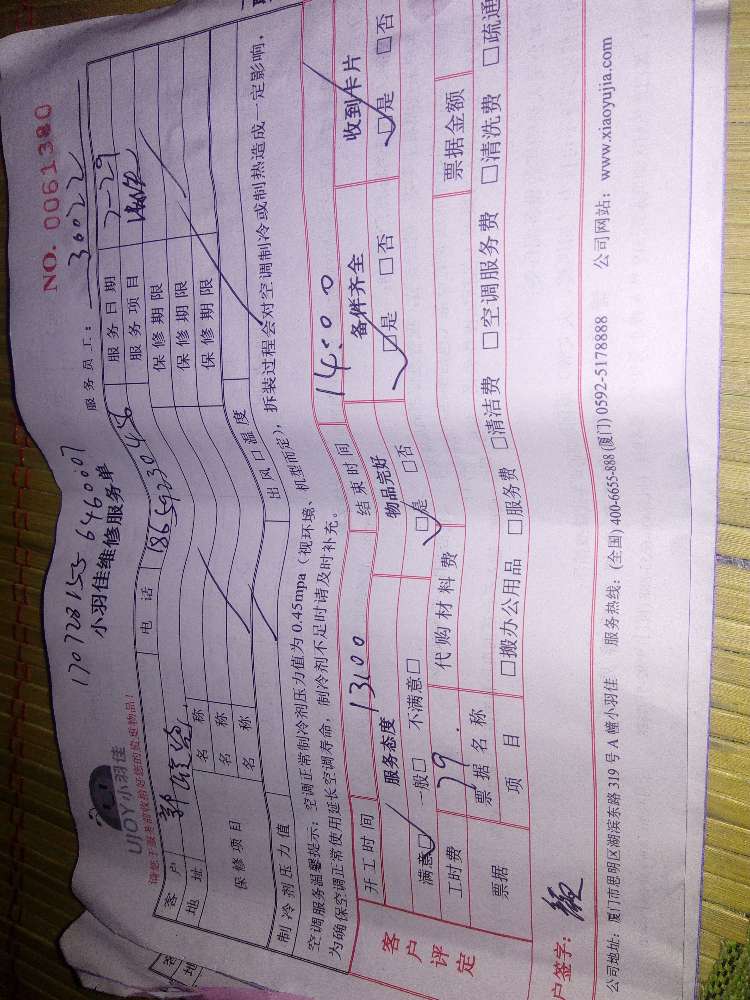 NO. 0061380
170728155 6460007
UJOY小羽佳
小羽佳维修服务单
服务员工： 30022
请您于服务前收拾好您的贵重物品！
客户 电话 18659230458 服务日期 7-29
地址 服务项目
保修项目 名称 保修期限
名称 保修期限
名称 保修期限
制冷剂压力值 出风口温度
空调服务温馨提示：空调正常制冷剂压力值为0.45mpa（视环境、机型而定），拆装过程会对空调制冷或制热造成一定影响，
为确保空调正常使用延长空调寿命，制冷剂不足时请及时补充。
客户评定
开工时间 13:00 结束时间 14:00
服务态度 物品完好 备件齐全 收到卡片
满意□ 一般□ 不满意□ □是 □否 □是 □否 □是 □否
工时费 79. 代购材料费
票据 票据名称 票据金额
项目 □搬办公用品 □服务费 □清洁费 □空调服务费 □清洗费 □疏通
户签字：
公司地址：厦门市思明区湖滨东路319号A幢小羽佳 服务热线：(全国) 400-6655-888 (厦门) 0592-5178888 公司网站：www.xiaoyujia.com